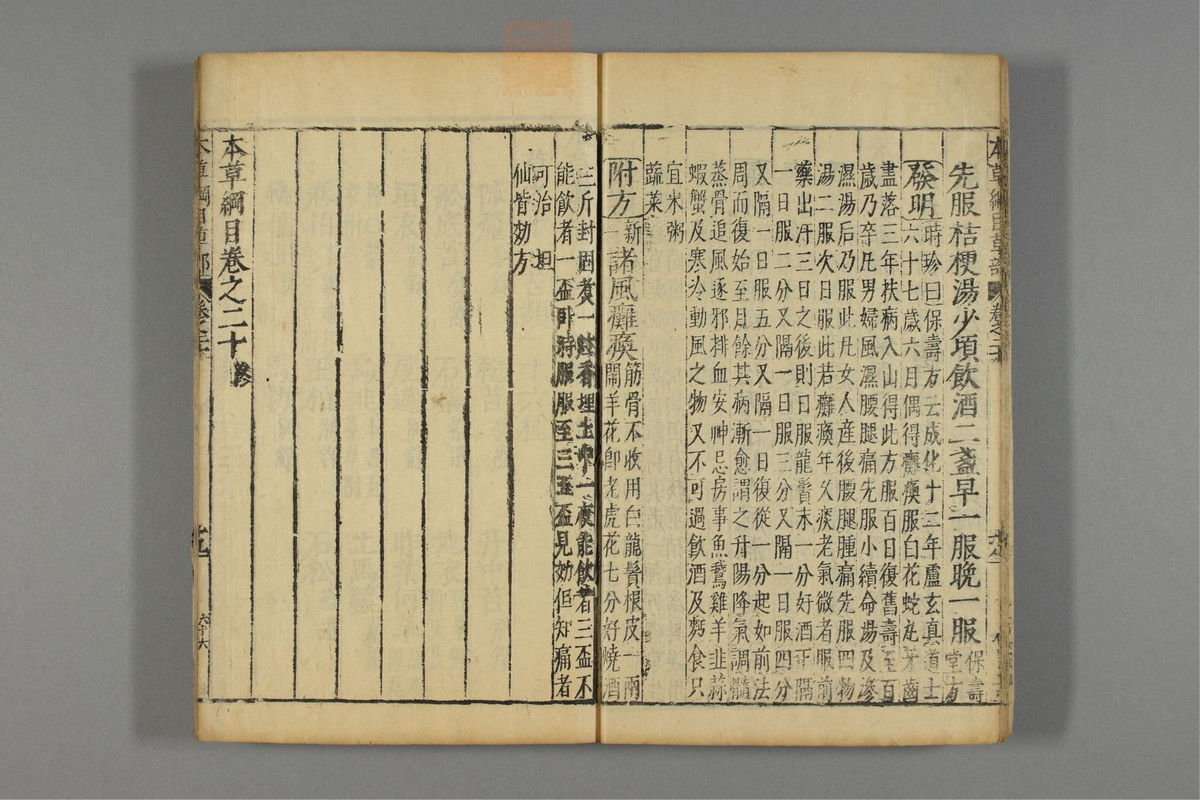 先服桔梗湯少頃飲酒二盞早一服晚一服保壽
堂方
發明時珍曰保壽方云成化十二年盧玄真道士
六十七歲六月偶得癱瘓服白花蛇丸牙齒
盡落三年扶病入山得此方服百日復舊壽至百
歲乃卒凡男婦風濕腰腿痛先服小續命湯及滲
濕湯后乃服此凡女人産後腰腿腫痛先服四物
湯二服次日服此若癱瘓年久痰老氣微者服前
藥出汗三日之後則日服龍鬚末一分好酒下隔
一日服二分又隔一日服三分又隔一日服四分
又隔一日服五分又隔一日復從一分起如前法
周而復始至月餘其病漸愈謂之升陽降氣調髓
蒸骨追風逐邪排血安神忌房事魚鵞雞羊韭蒜
蝦蟹及寒冷動風之物又不可過飲酒及麪食只
宜米粥
蔬菜
附方新一諸風癱瘓筋骨不收用白龍鬚根皮一兩
鬧羊花即老虎花七分好燒酒
三斤封固煮一炷香埋土中一夜能飲者三盃不
能飲者一盃卧時服服至三五盃見効但知痛者
可治 坦
仙皆効方
本草綱目卷之二十終
本草綱目草部 卷之二十